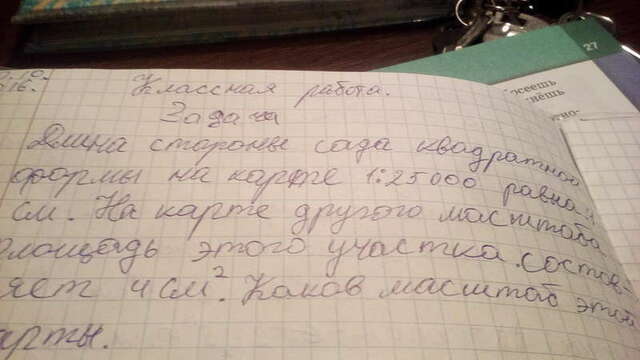 27
Классная работа.
Задача
Длина стороны сада квадратной
формы на карте 1:25000 равна
см. На карте другого масштаба
площадь этого участка состав-
яет 4 см². Каков масштаб этой
арты.